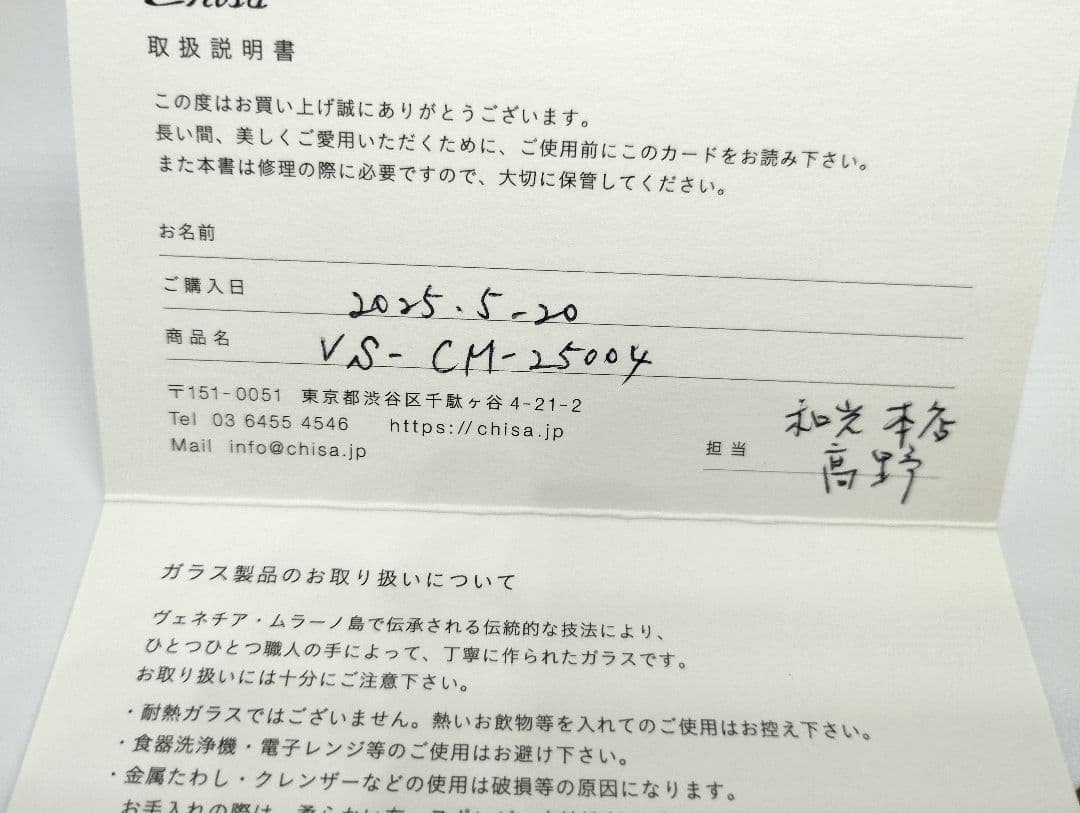 Chisa
取扱説明書
この度はお買い上げ誠にありがとうございます。
長い間、美しくご愛用いただくために、ご使用前にこのカードをお読み下さい。
また本書は修理の際に必要ですので、大切に保管してください。
お名前
ご購入日 2025.5-20
商品名 VS-CM-25004
〒151-0051 東京都渋谷区千駄ヶ谷4-21-2
Tel 03 6455 4546 https://chisa.jp
Mail info@chisa.jp
担当 和光 本店
高野
ガラス製品のお取り扱いについて
ヴェネチア・ムラーノ島で伝承される伝統的な技法により、
ひとつひとつ職人の手によって、丁寧に作られたガラスです。
お取り扱いには十分にご注意下さい。
・耐熱ガラスではございません。熱いお飲物等を入れてのご使用はお控え下さい。
・食器洗浄機・電子レンジ等のご使用はお避け下さい。
・金属たわし・クレンザーなどの使用は破損等の原因になります。
お手入れの際は、柔らかい布、スポンジ